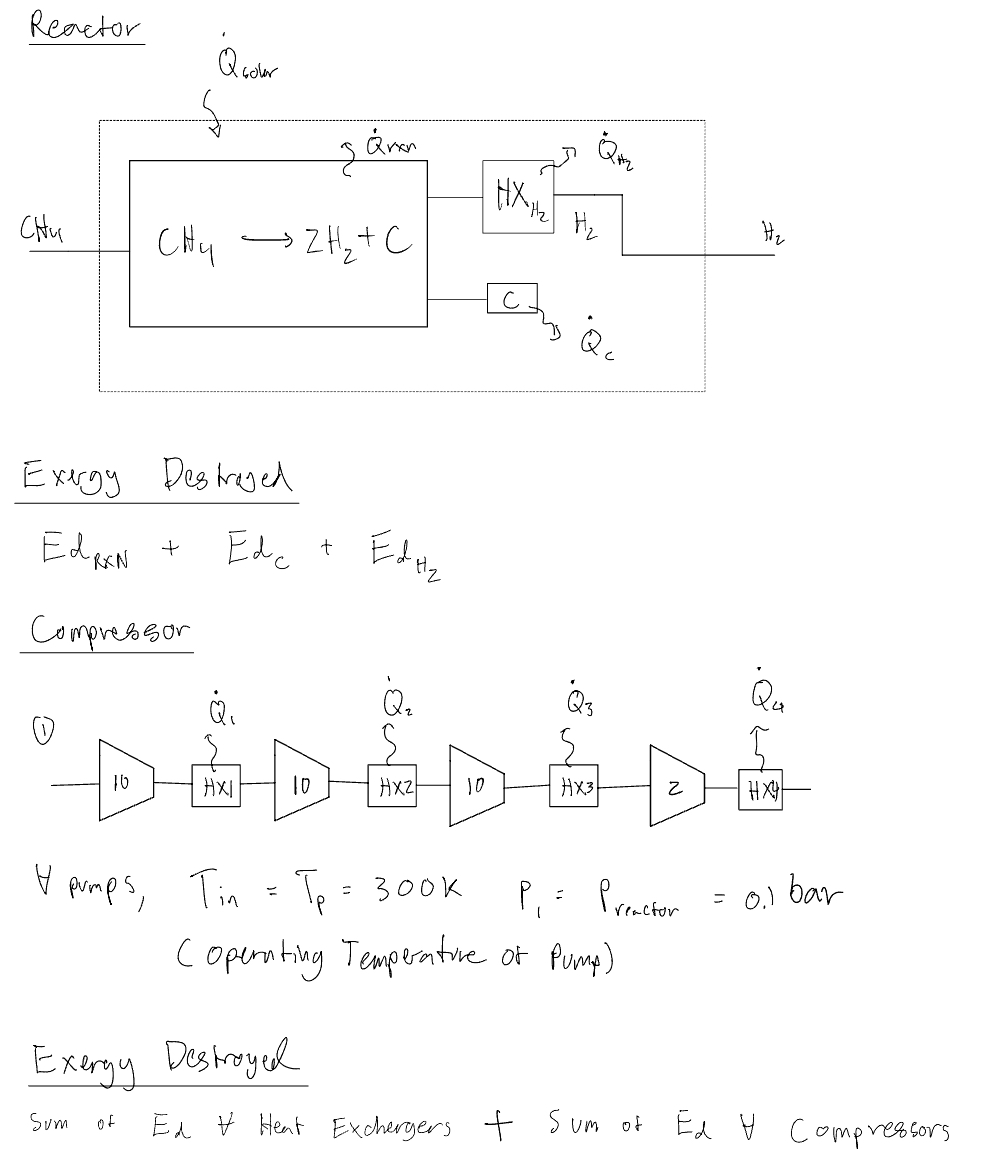 Reactor
Q̇solar
Q̇rxn
Q̇H₂
CH₄
CH₄ → 2H₂ + C
HX H₂
H₂
H₂
C
Q̇c
Exergy Destroyed
Ed RXN + Ed C + Ed H₂
Compressor
Q̇₁ Q̇₂ Q̇₃ Q̇₄
① 10 HX1 10 HX2 10 HX3 2 HX4
∀ pumps, Tin = Tp = 300K P₁ = Preactor = 0.1 bar
(operating Temperature of Pump)
Exergy Destroyed
Sum of Ed ∀ Heat Exchergers + Sum of Ed ∀ Compressors